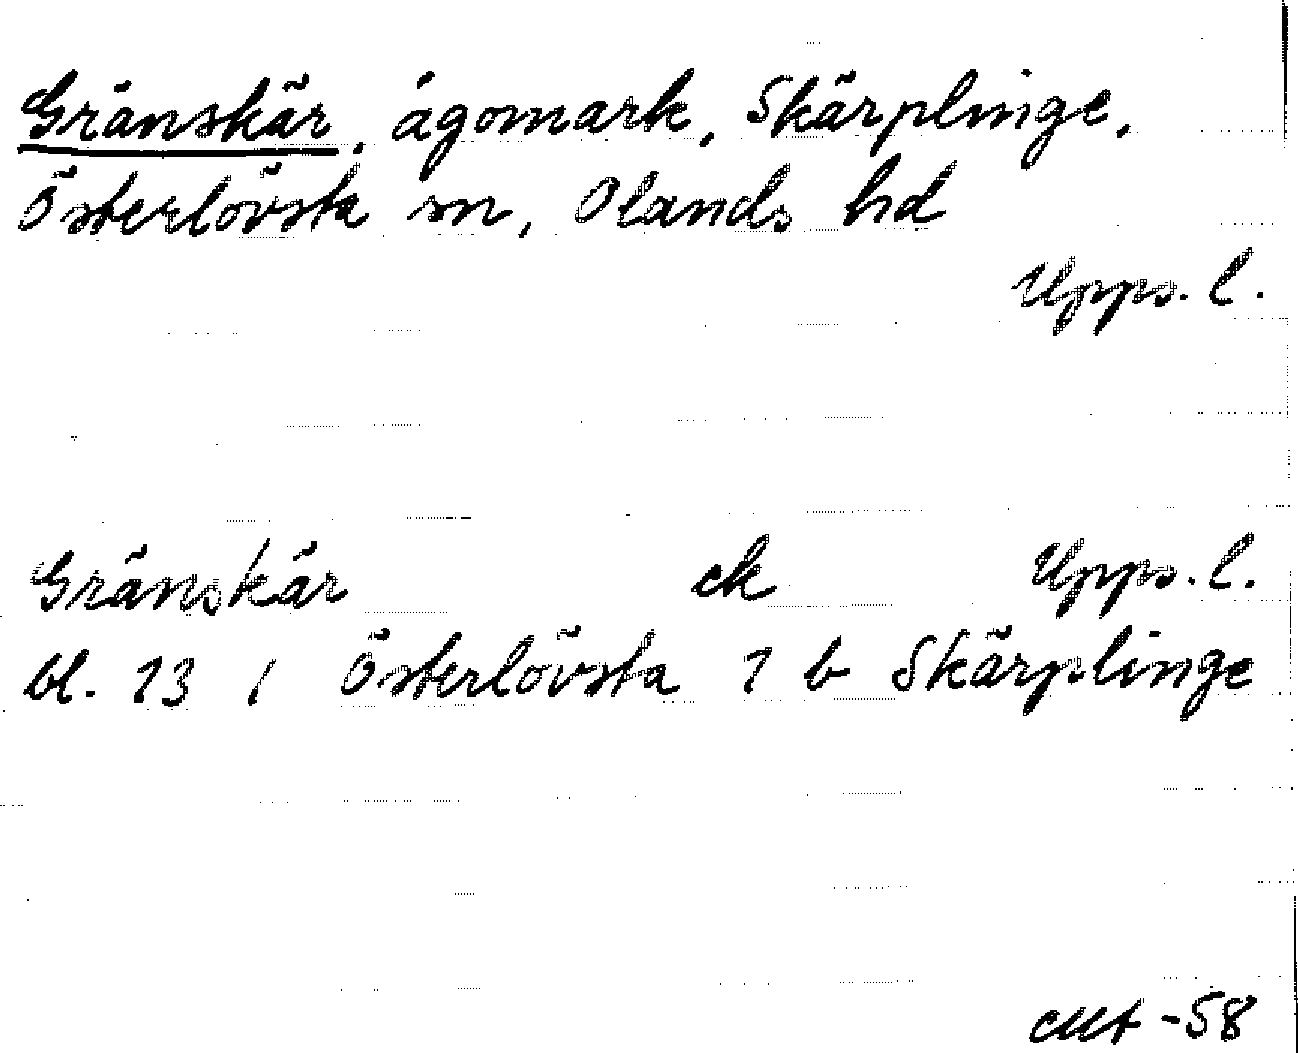 Gränskär, ägomark, Skärplinge,
Österlövsta sn, Olands hd
Upps. l.
Gränskär ek Upps. l.
bl. 13 i Österlövsta 1 b Skärplinge
-58